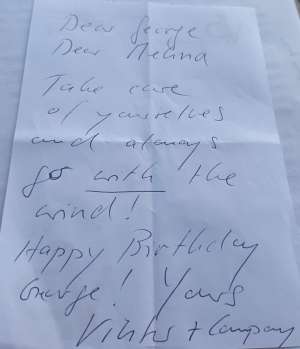 Dear George
Dear Melina
Take care
of yourselves
and always
go with the
wind!
Happy Birthday
George! Yours
+ Company